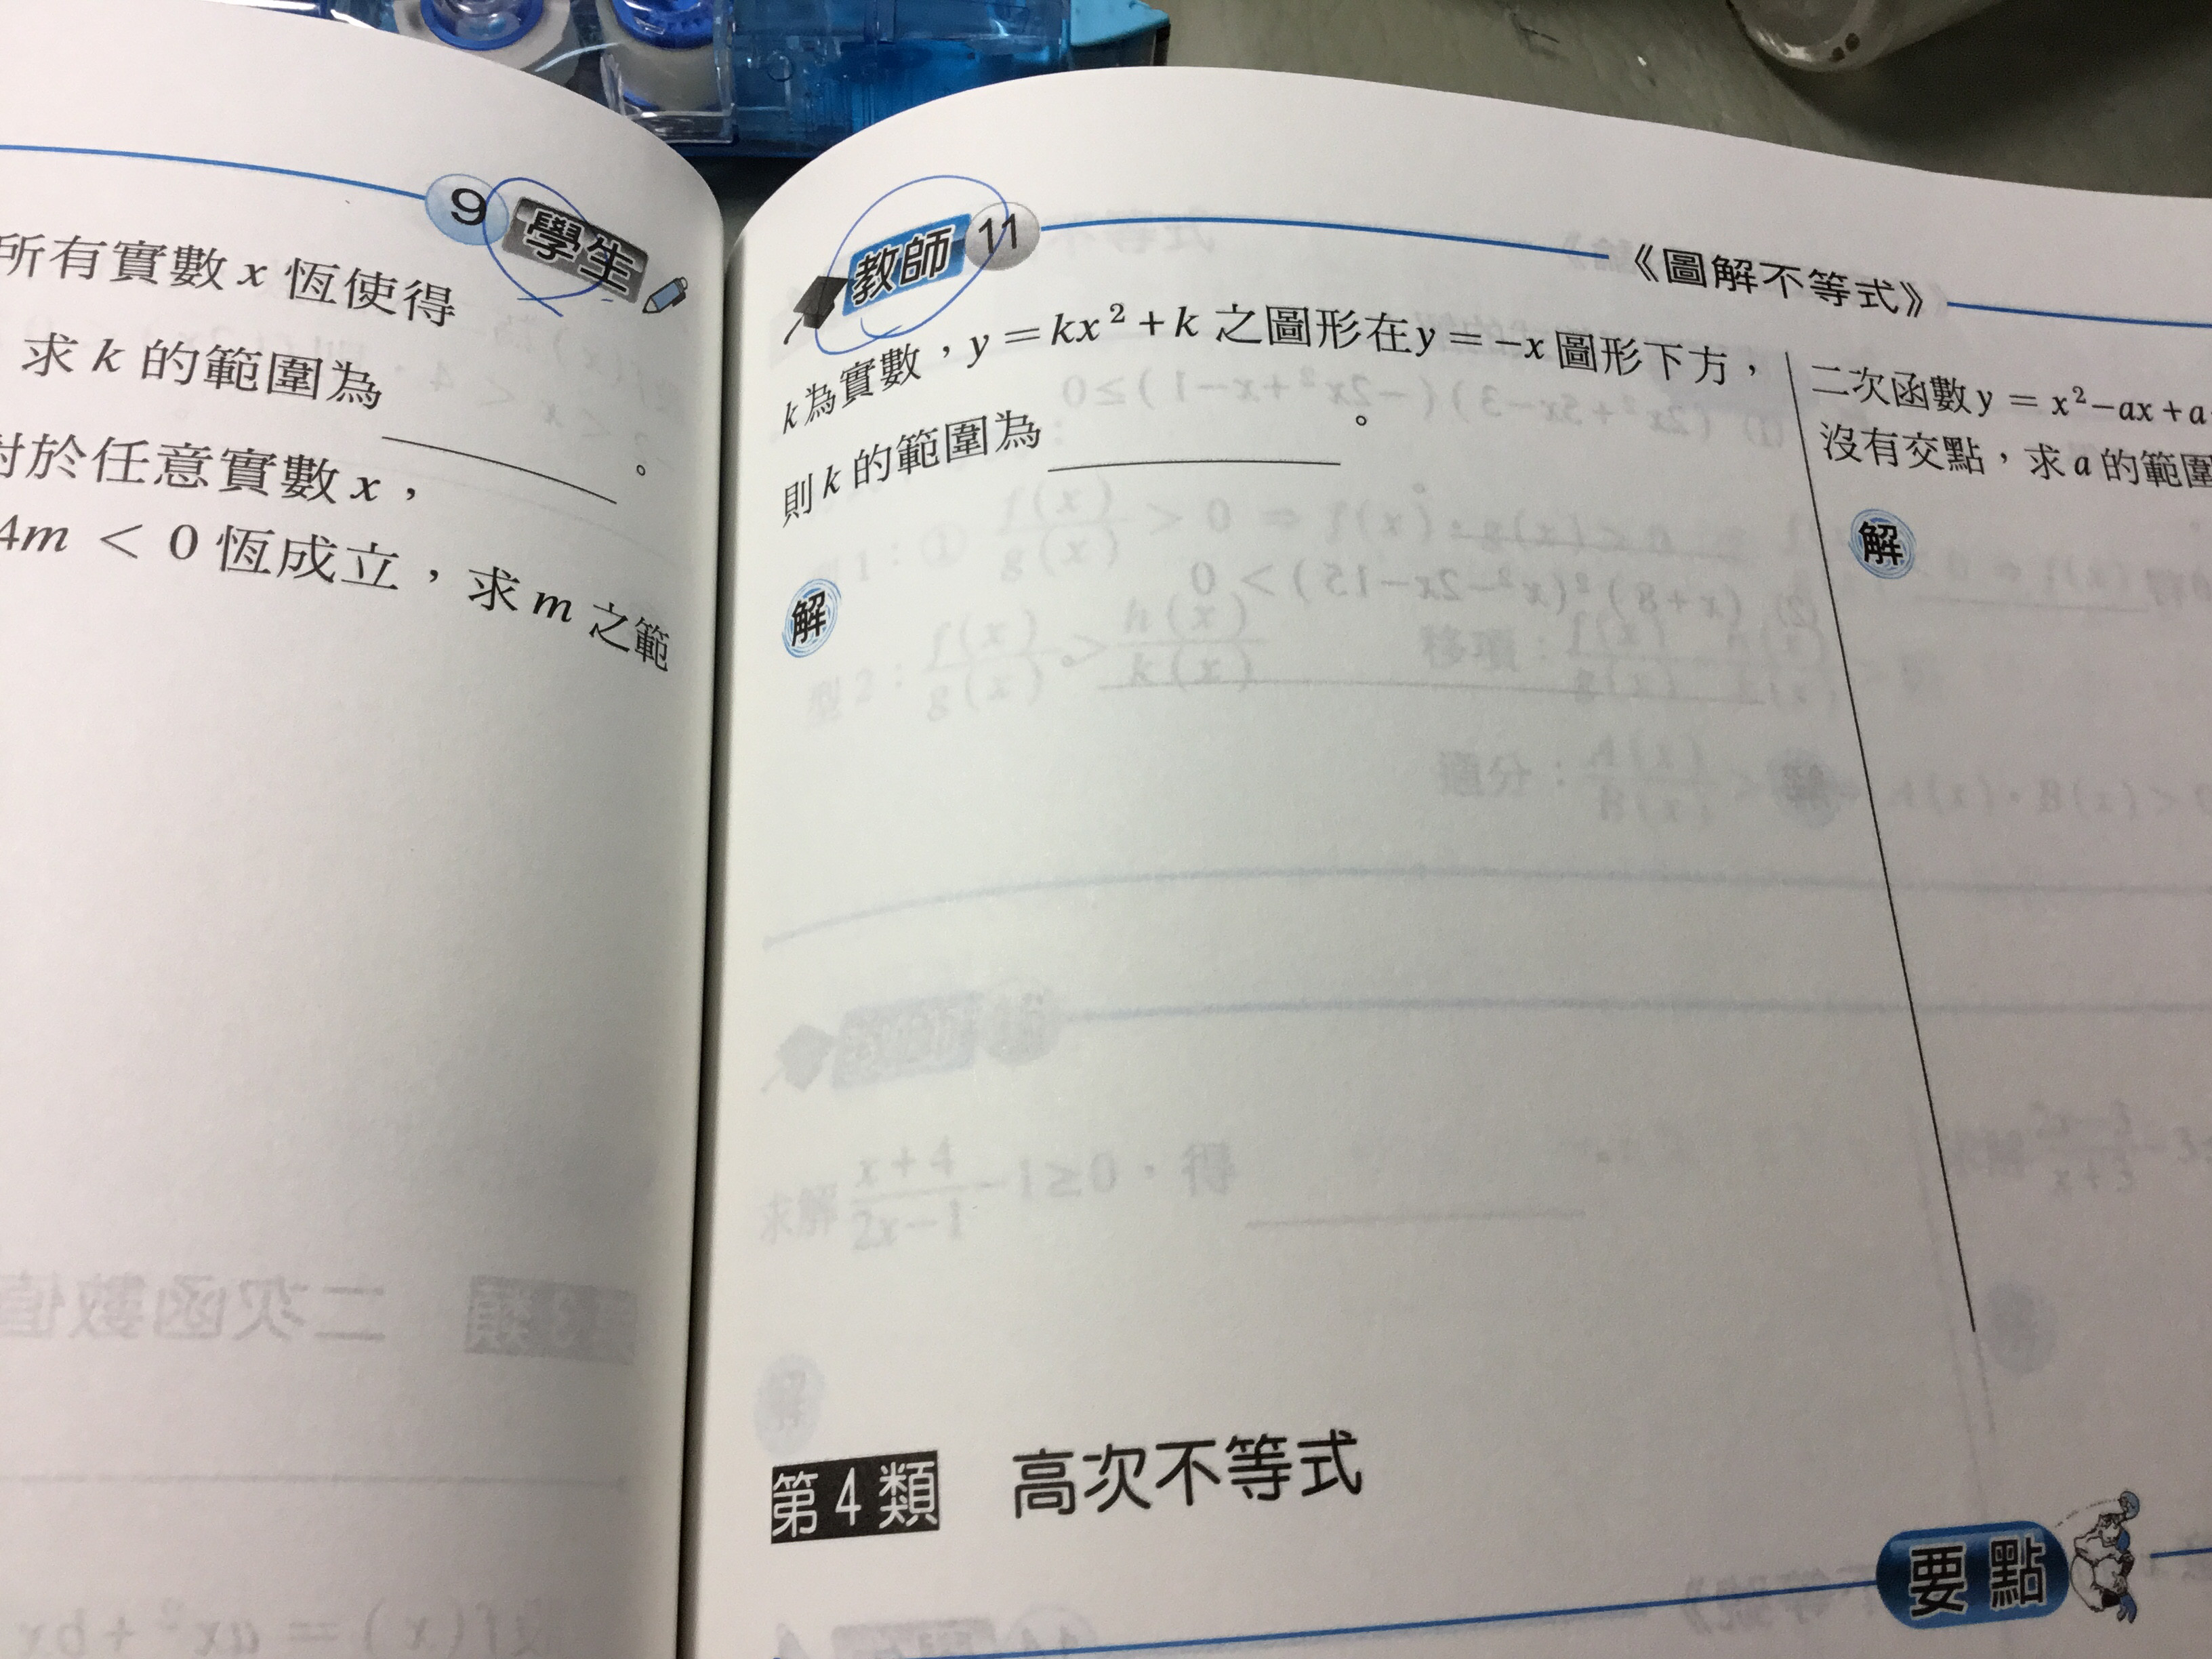 9 學生
所有實數 x 恆使得
求 k 的範圍為________。
對於任意實數 x，
4m < 0 恆成立，求 m 之範
教師 11 《圖解不等式》
k 為實數，y = kx²+k 之圖形在 y = −x 圖形下方，
則 k 的範圍為________。
解
二次函數 y = x²−ax+a
沒有交點，求 a 的範圍
解
第 4 類 高次不等式
要點